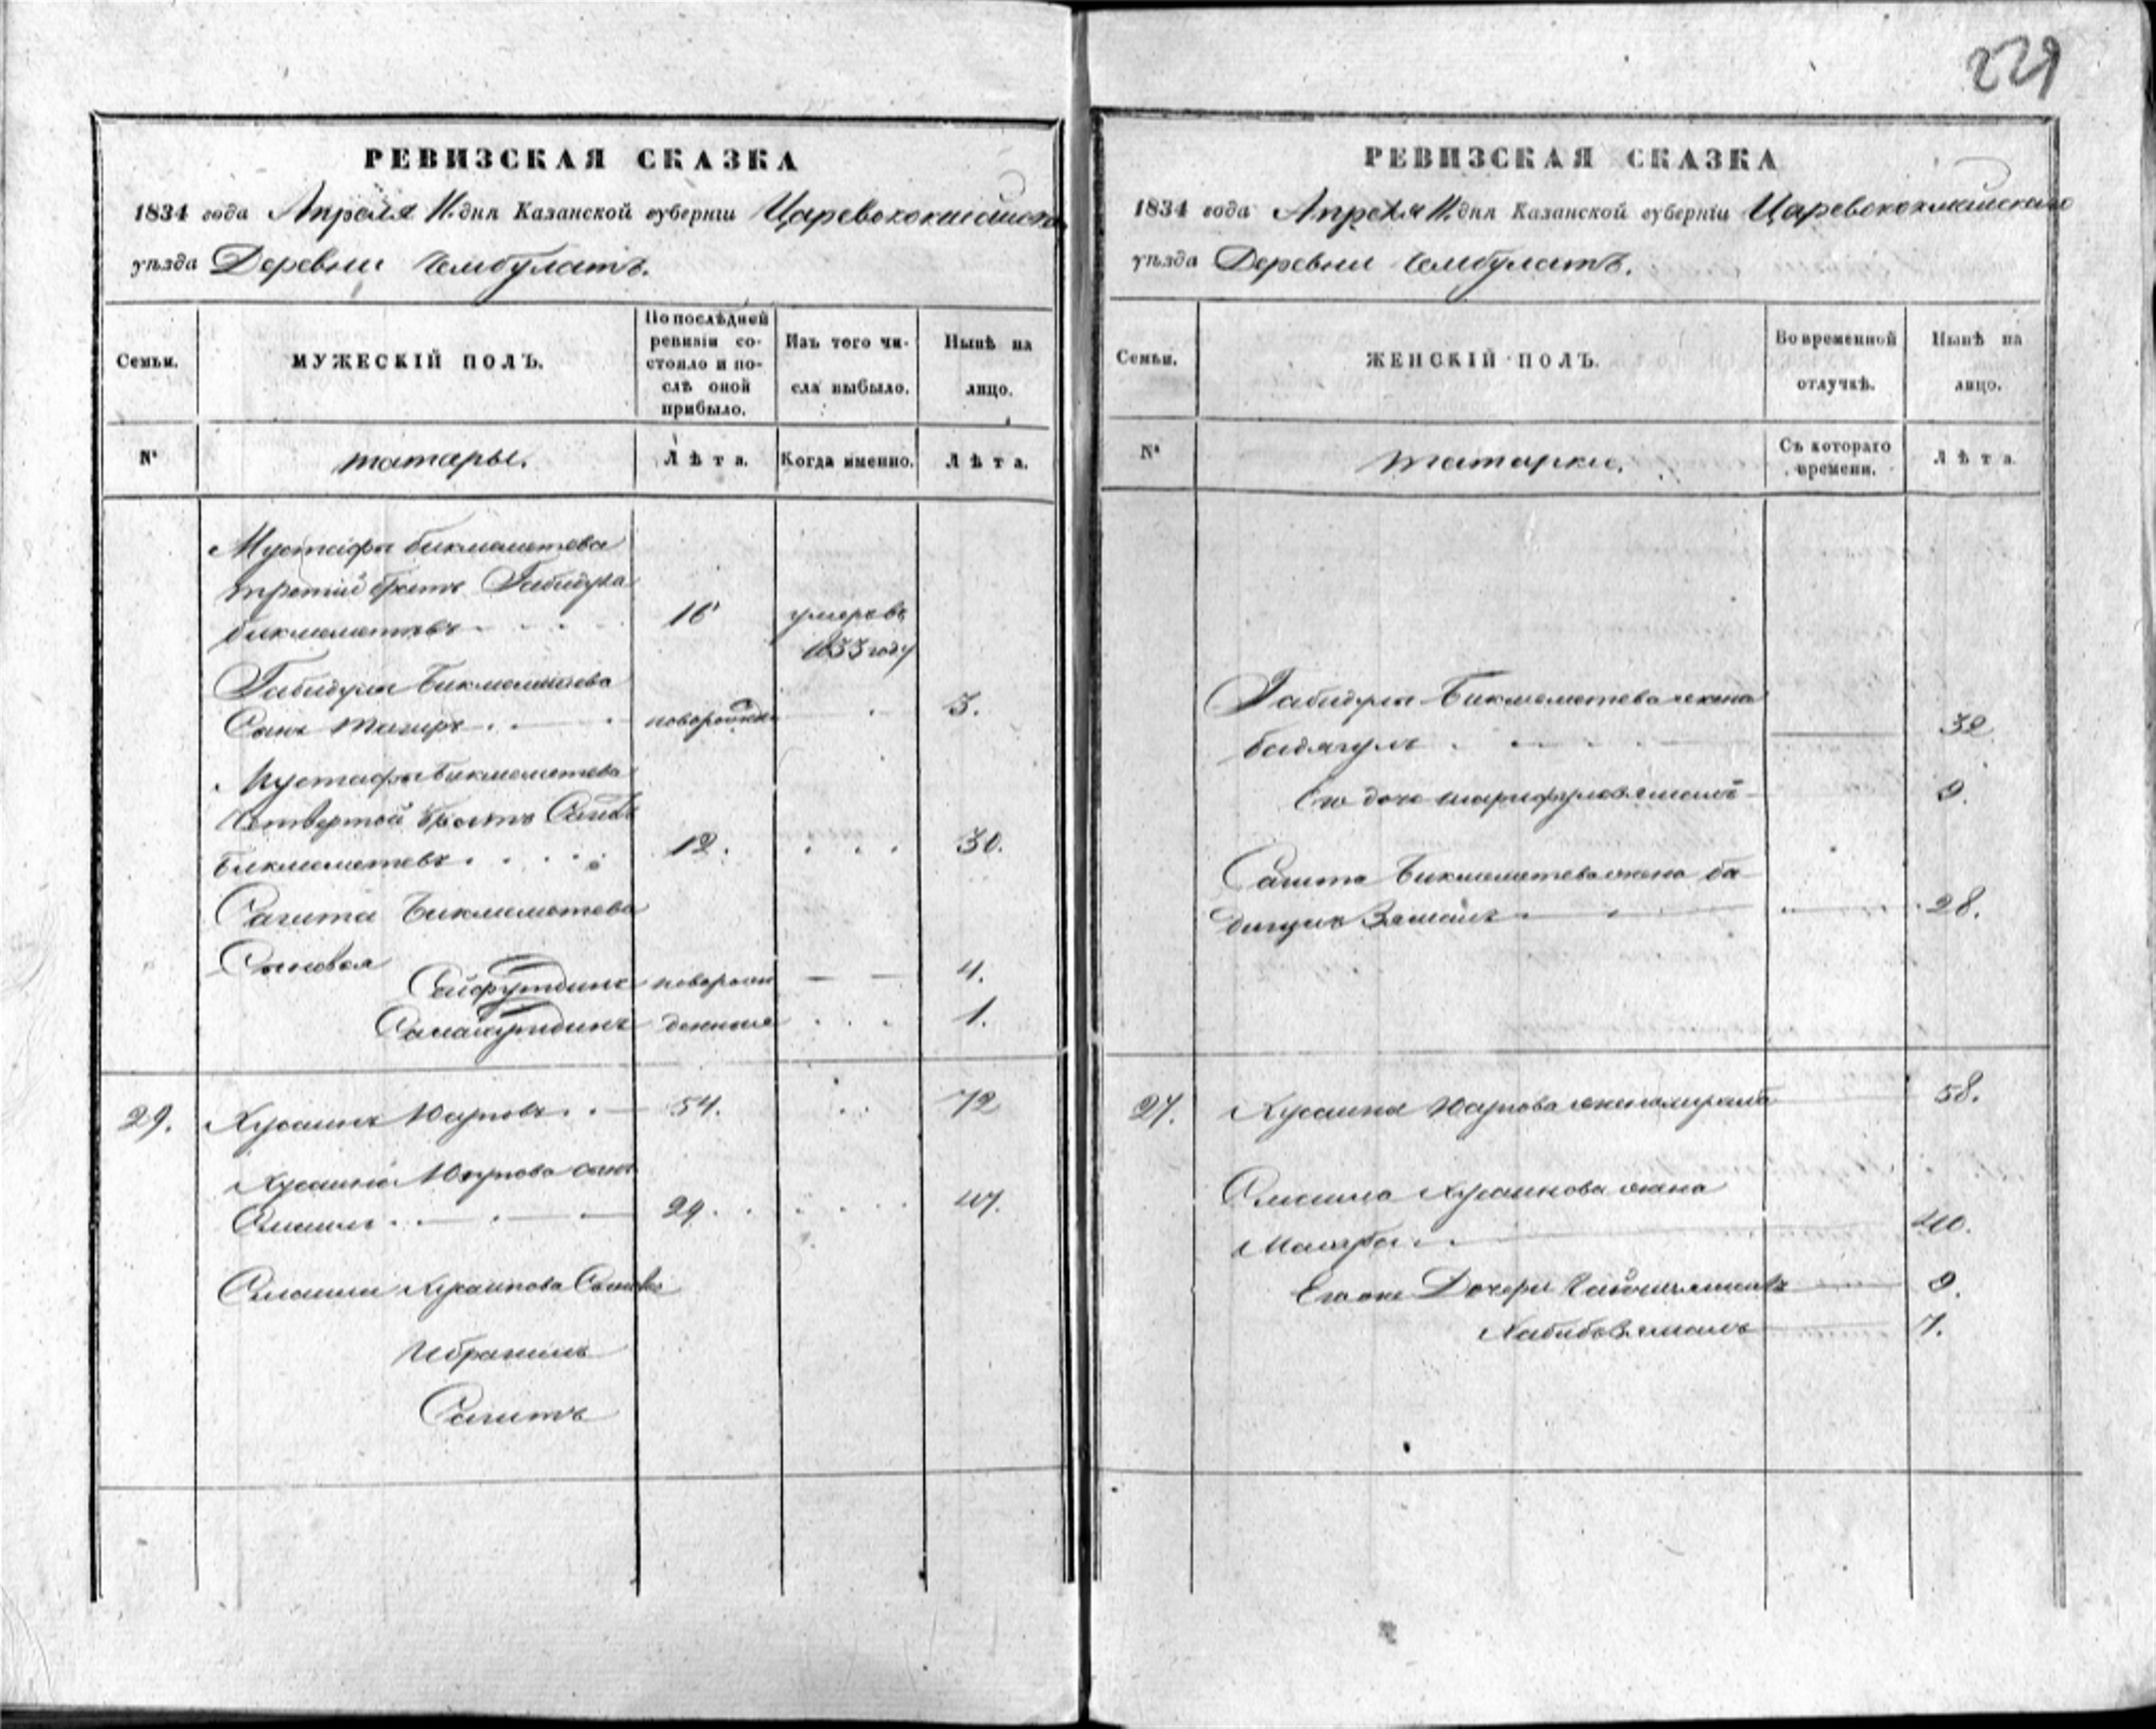 229
РЕВИЗСКАЯ СКАЗКА
1834 года Апреля 11. дня Казанской губерніи Царевококшайска
уѣзда Деревни Чембулатъ.
Семьи.
МУЖЕСКІЙ ПОЛЪ.
По послѣдней
ревизіи со-
стояло и по-
слѣ оной
прибыло.
Изъ того чи-
сла выбыло.
Нынѣ на
лицо.
№
татары.
Лѣта.
Когда именно.
Лѣта.
Мустафы бикмеметева
третий братъ Габидула
бикмеметевъ 16 умеръ въ
1833 году
Габидулы Бикмеметева
Сынъ Тагиръ новорожден 3.
Мустафы Бикмеметева
Четвертой братъ Сагитъ
Бикмеметевъ 12. 30.
Сагита Бикмеметева
Сыновья
Сайфутдинъ новорож 4.
Салахутдинъ денные 1.
29. Хусаинъ Юсуповъ 54. 72
Хусаина Юсупова сынъ
29. 47.
Хусаинова Сыновья
Ибрагимъ
Сагитъ
РЕВИЗСКАЯ СКАЗКА
1834 года Апреля 11. дня Казанской губерніи Царевококшайскаго
уѣзда Деревни Чембулатъ.
Семьи.
ЖЕНСКІЙ ПОЛЪ.
Во временной
отлучкѣ.
Нынѣ на
лицо.
№
татарки.
Съ котораго
времени.
Лѣта
Габидулы Бикмеметева жена
бадягулъ 32
Его дочь 9.
Сагита Бикмеметева жена ба
28.
27. Хусаина Юсупова жена 58.
Хусаинова жена
40.
Его же Дочери 9.
Хабибзямалъ 7.